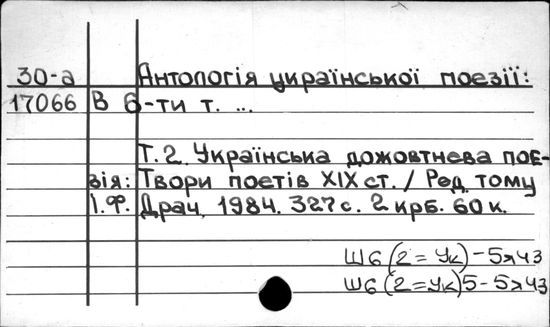 30-а Антологія української поезії:
17066 В 6-ти т. ...
Т. 2. Українська дожовтнева пое-
зія: Твори поетів XIX ст. / Ред. тому
І. Ф. Драч. 1984. 327 с. 2 крб. 60 к.
Ш6(2=Ук)-5я43
Ш6(2=Ук)5-5я43